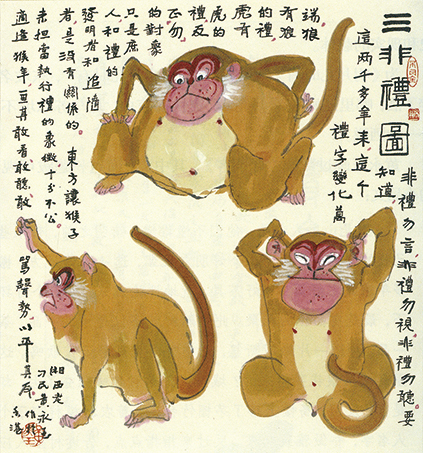 三非禮圖
非禮勿言，非禮勿視，非禮勿聽，要
知道
這兩千多年来，這个
禮字變化萬
端，狼
有狼
的禮
虎有
虎的
禮，反
正勿
的對象
只是庶
人和禮的
發明者和追隨
者是没有關係的。東方讓猴子
来担當執行禮的象徵十分不公，
適逢猴年，其敢看敢聽敢
罵聲勢，以平其反。
湘西老
刁民黃永玉
作於
香港